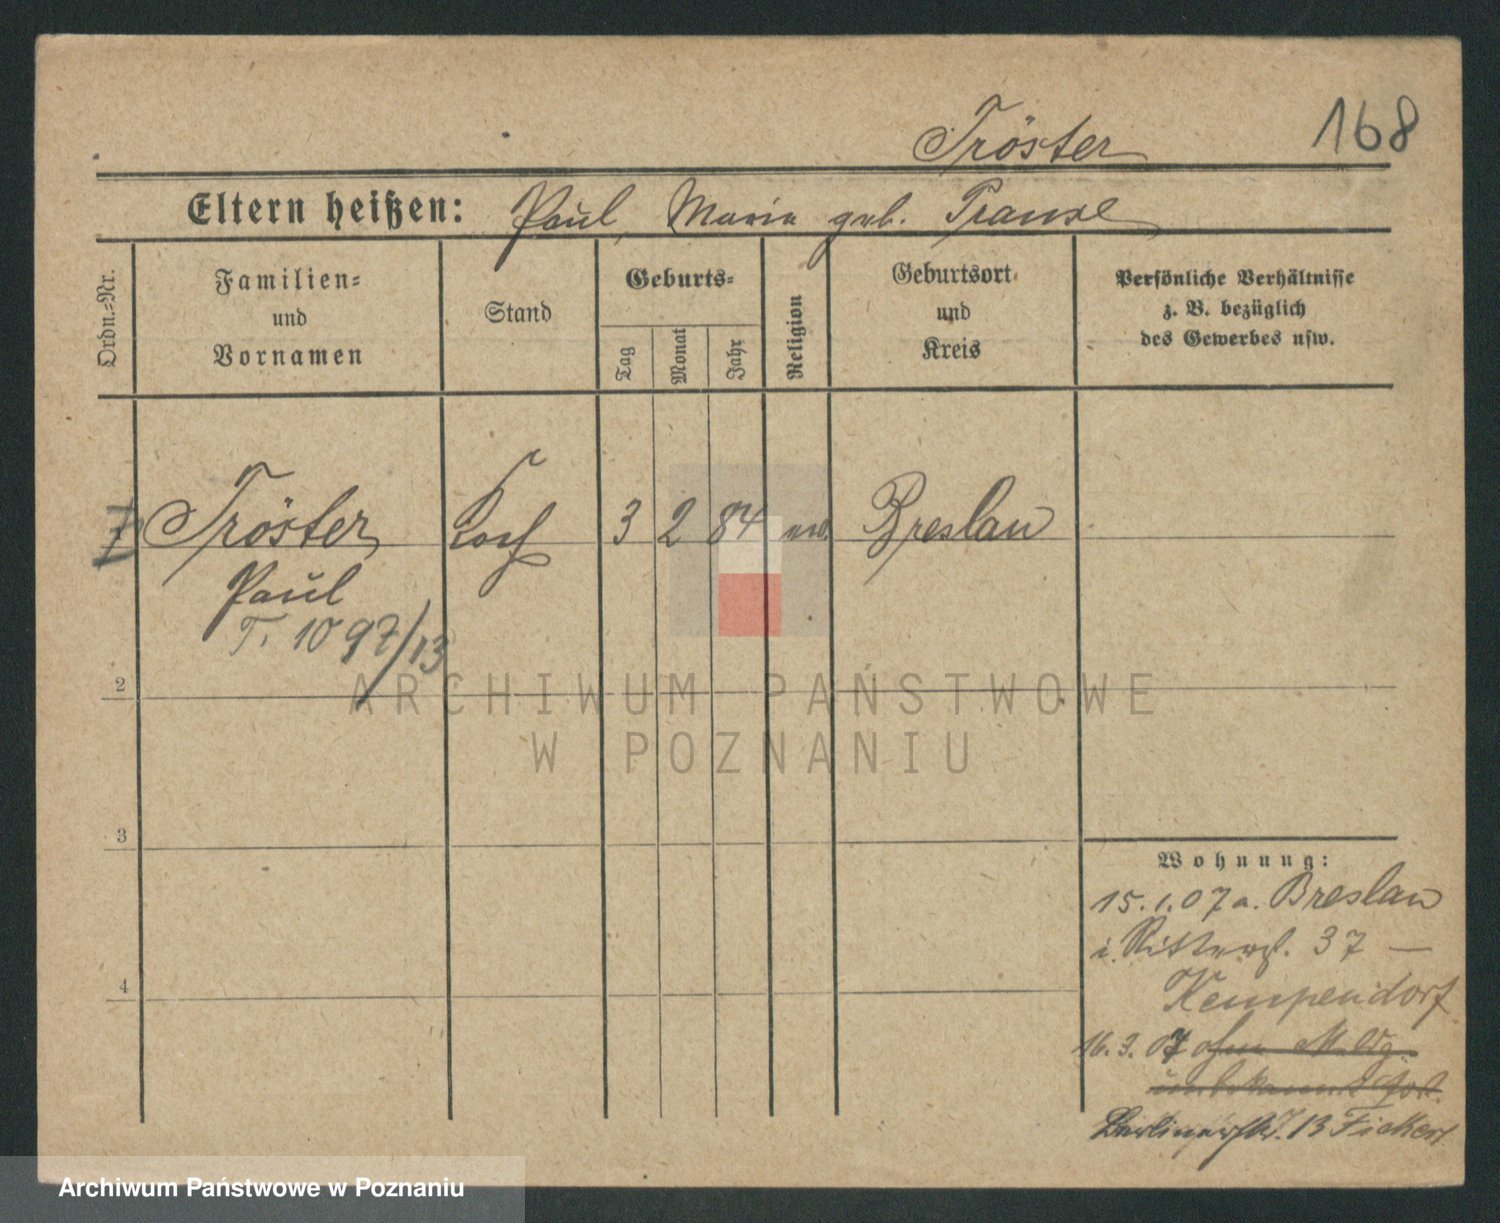 Tröster 168
Eltern heißen: Paul, Maria geb.
Ordn.-Nr.
Familien-
und
Vornamen
Stand
Geburts-
Tag
Monat
Jahr
Religion
Geburtsort
und
Kreis
Persönliche Verhältnisse
z. B. bezüglich
des Gewerbes usw.
Tröster Koch 3 2 84 ev. Breslau
Paul
T. 1097/13
2
3
4
Wohnung:
15.1.07 a. Breslau
i. Ritterst. 37 —
Kempendorf
16.3.07 ohne Meldg.
unbekannt
Berlinerstr. 13
ARCHIWUM PAŃSTWOWE
W POZNANIU
Archiwum Państwowe w Poznaniu